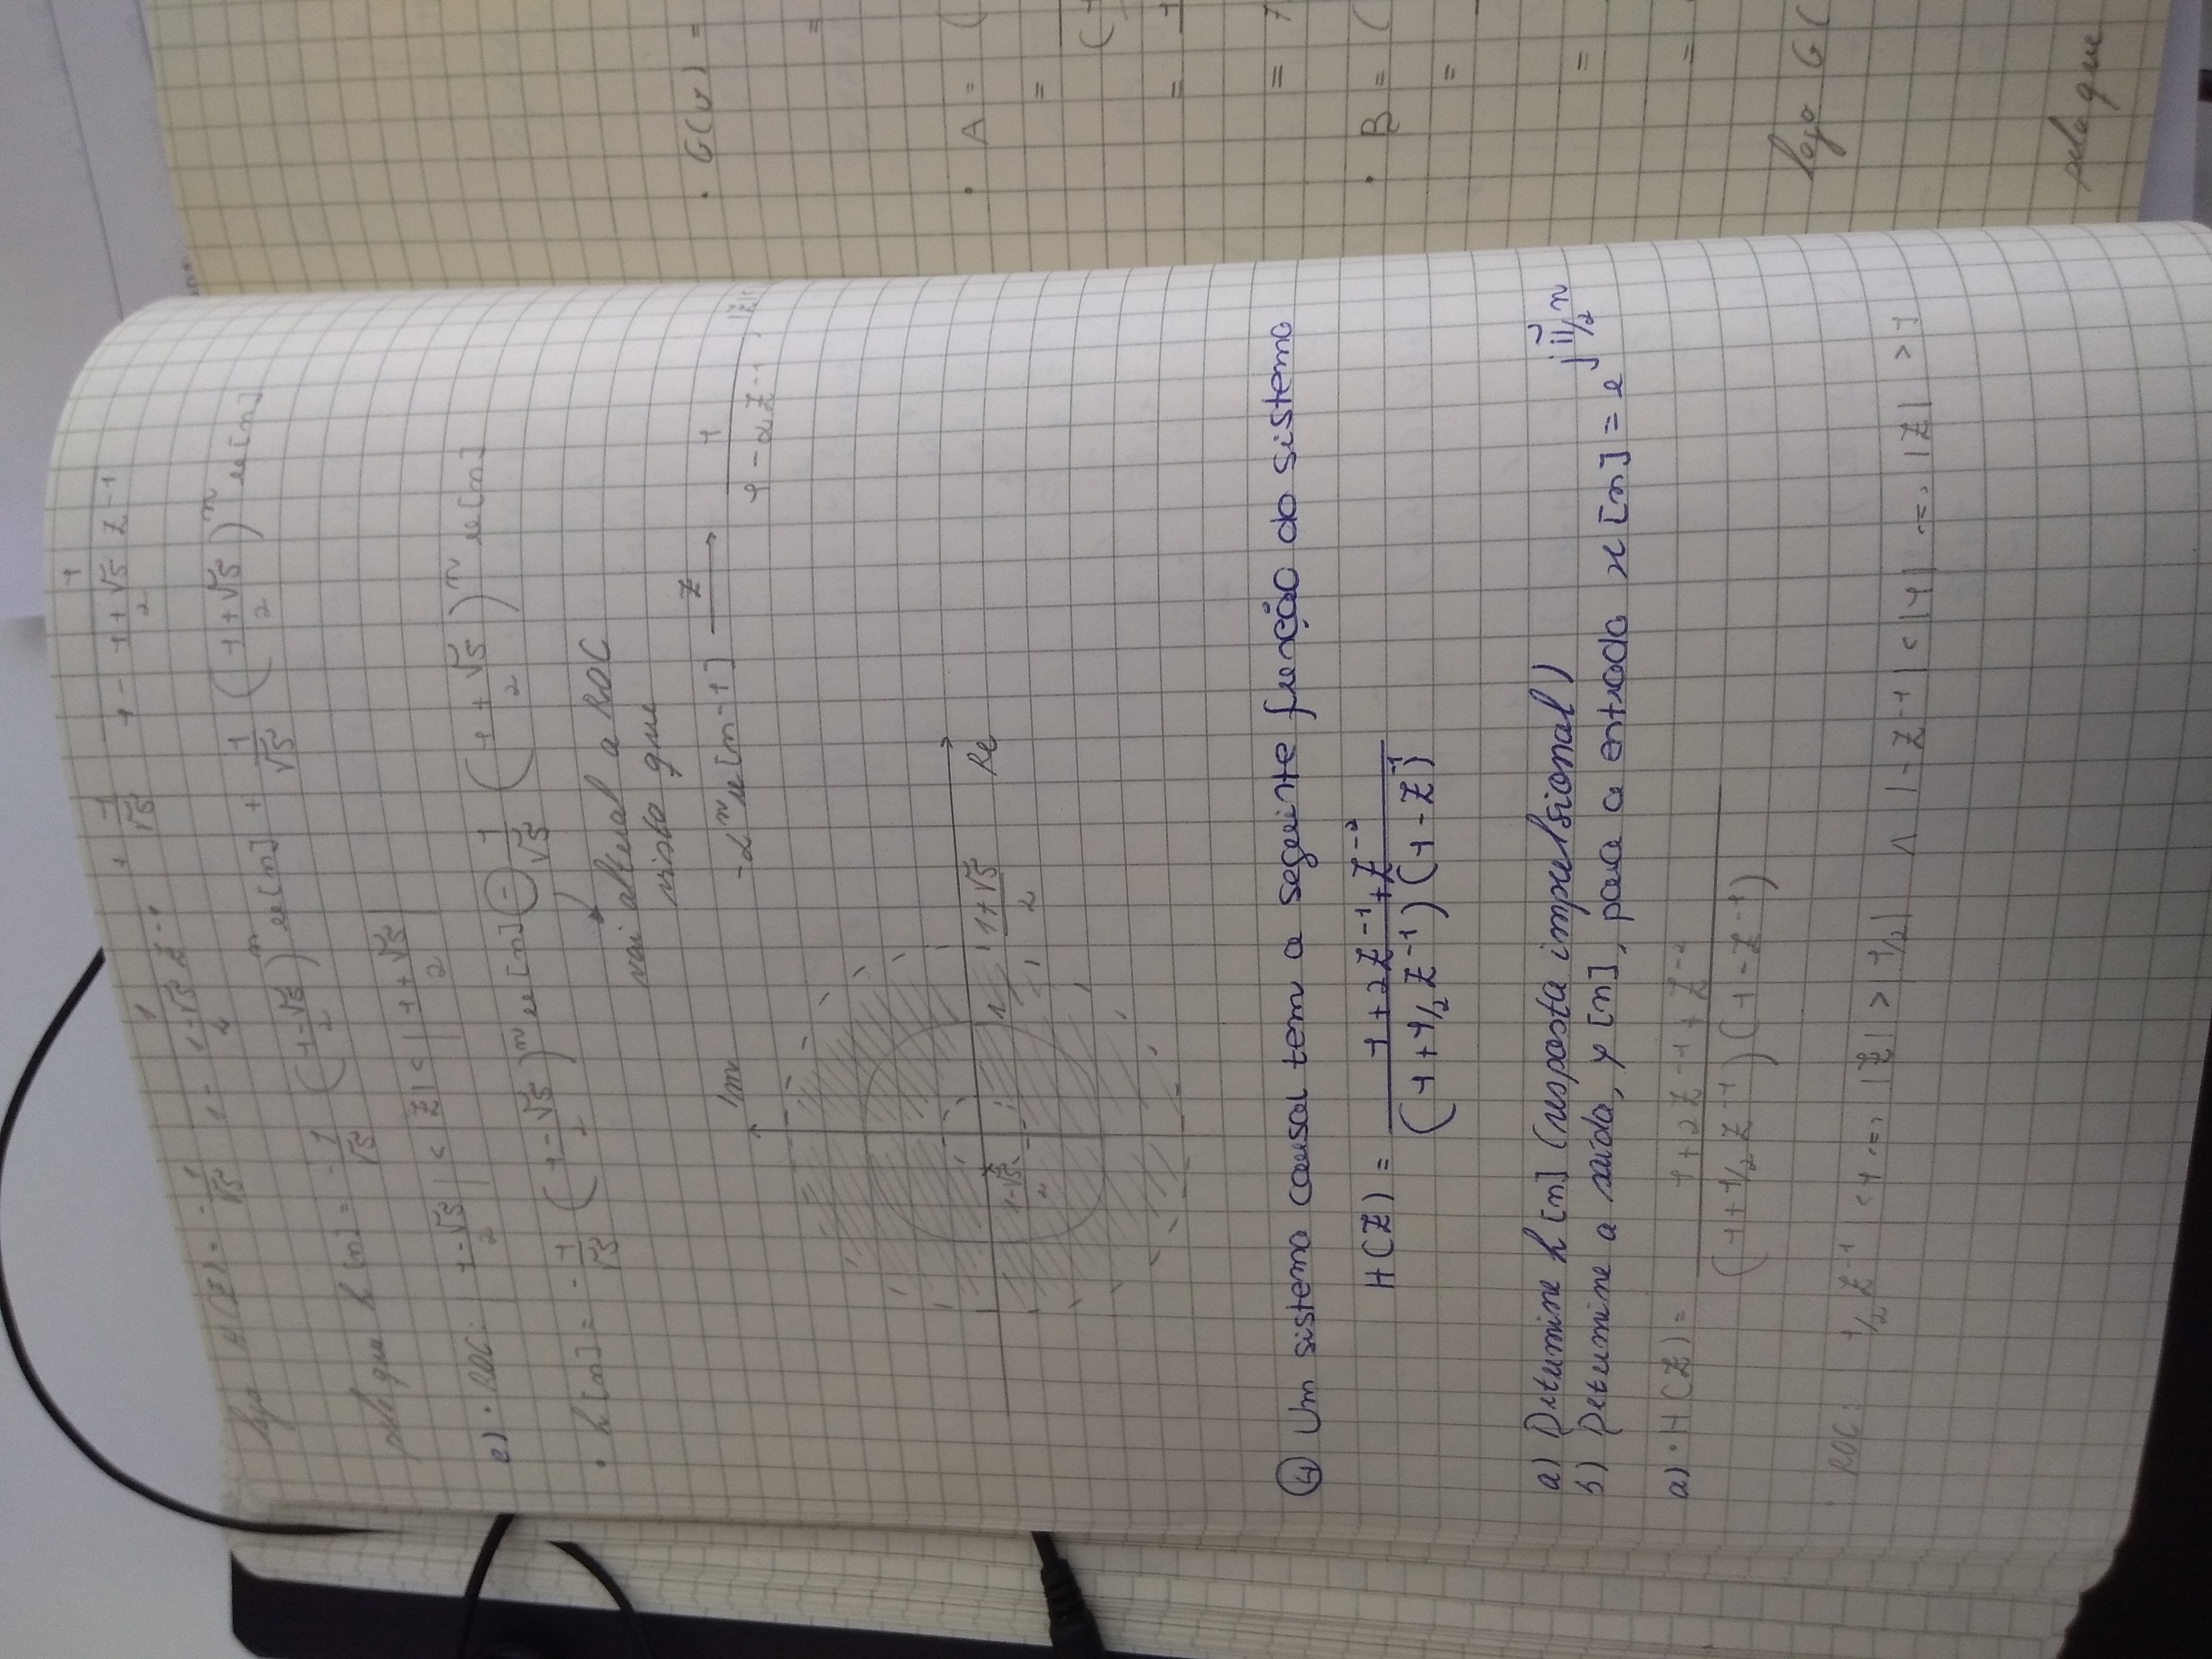 logo H(Z) = -1/√5 1/(1 - (1-√5)/2 Z^-1) + 1/√5 1/(1 - (1+√5)/2 Z^-1)
pelo que h[n] = -1/√5 ((1-√5)/2)^n u[n] + 1/√5 ((1+√5)/2)^n u[n]
e) • ROC: |(1-√5)/2| < |Z| < |(1+√5)/2|
• h[n] = -1/√5 ((1-√5)/2)^n u[n] - 1/√5 ((1+√5)/2)^n u[n]
vai alteral a ROC
visto que
-α^n u[n-1] Z→ 1/(1-αZ^-1), |Z|
Im
Re
(1-√5)/2 1 (1+√5)/2
④ Um sistema causal tem a seguinte função do sistema
H(Z) = (1+2Z^-1+Z^-2)/((1+1/2 Z^-1)(1-Z^-1))
a) Determine h[n] (resposta impulsional)
b) Determine a saída, y[n], para a entrada x[n] = e^(jπ/2 n)
a) • H(Z) = (1+2Z^-1+Z^-2)/((1+1/2 Z^-1)(1-Z^-1))
ROC: |1/2 Z^-1| < 1 <=> |Z| > |1/2| ∧ |-Z^-1| < |1| <=> |Z| > 1
• G(v) =
=
• A = (
=
(
=
= 7
• B = (
=
=
=
logo G(
pelo que